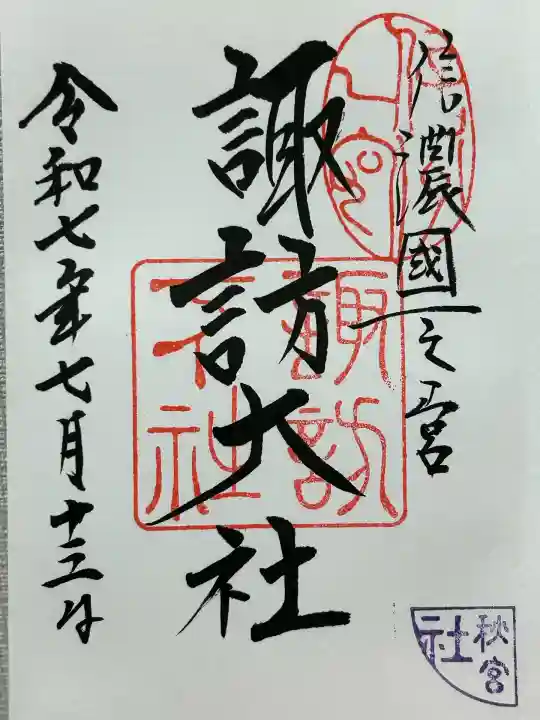 信濃國一之宮
諏訪大社
令和七年七月十三日
諏訪
大社
秋宮
社